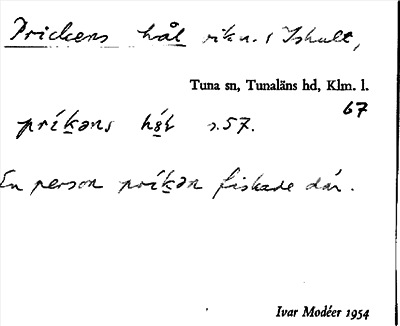 Prickens hål vik n. i Ishult,
Tuna sn, Tunaläns hd, Klm. l.
67
príḵəns hå̱l s.57.
En person príḵən fiskade där.
Ivar Modéer 1954